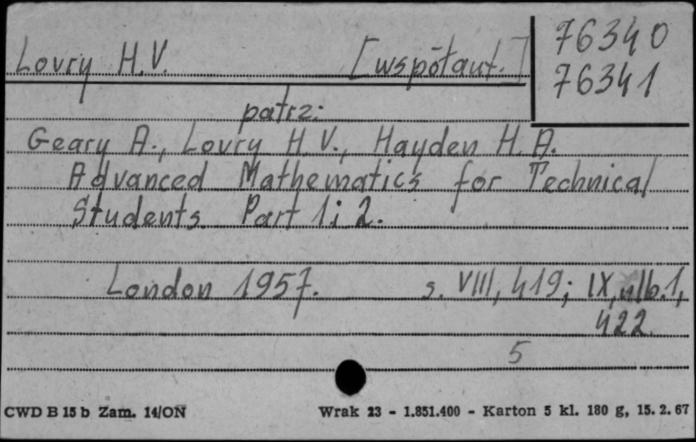 Lovry H.V. [współaut.]
76340
76341
patrz:
Geary A., Lovry H.V., Hayden H.A.
Advanced Mathematics for Technical
Students. Part 1 i 2.
London 1957. s. VIII, 419; IX, nlb.1,
422.
5
CWD B 15 b Zam. 14/ON Wrak 23 - 1.851.400 - Karton 5 kl. 180 g, 15. 2. 67